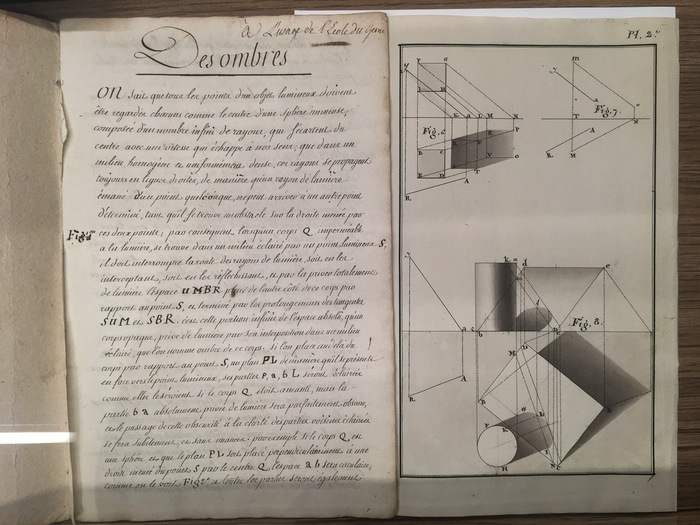 à L'usage de l'Ecole du Genie
Des ombres
On sait que tous les points d'un objet lumineux doivent
être regardés chacuns comme le centre d'une sphère immense,
composée d'un nombre infini de rayons, qui s'écartent du
centre avec une vitesse qui échappe à nos sens, que dans un
milieu homogène et uniformément dense, ces rayons se propagent
toujours en lignes droites, de manière qu'un rayon de lumière
émané d'un point quelconque, ne peut arriver à un autre point
déterminé, tant qu'il se trouve un obstacle sur la droite menée par
Fig. 1
ces deux points; par conséquent lorsqu'un corps Q imperméable
à la lumière, se trouve dans un milieu éclairé par un point lumineux S,
il doit interrompre la route des rayons de lumière, soit en les
interceptant, soit en les réfléchissant, et par là priver totalement
de lumière l'espace UMBR placé de l'autre côté de ce corps par
rapport au point S, et terminé par les prolongemens des tangentes
SUM et SBR: c'est cette portion infinie de l'espace absolu, qu'un
corps opaque, prive de lumière par son interposition dans un milieu
éclairé, que l'on nomme ombre de ce corps. Si l'on place au delà du
corps par rapport au point S, un plan PL de manière qu'il se présente
en face vers le point lumineux, ses parties P, a, b L seront éclairées
comme elles le seroient si le corps Q étoit anéanti, mais la
partie b a absolument privée de lumière sera parfaitement obscure,
et le passage de cette obscurité à la clarté des parties voisines éclairées
se fera subitement, et sans nuances: par exemple si le corps Q, est
une sphère et que le plan PL soit placé perpendiculairement à une
droite menée du point S par le centre Q l'espace ab sera circulaire,
comme on le voit Fig. a toutes les parties seront également
Pl. 2.e
Fig. 6
Fig. 7.
Fig. 8.